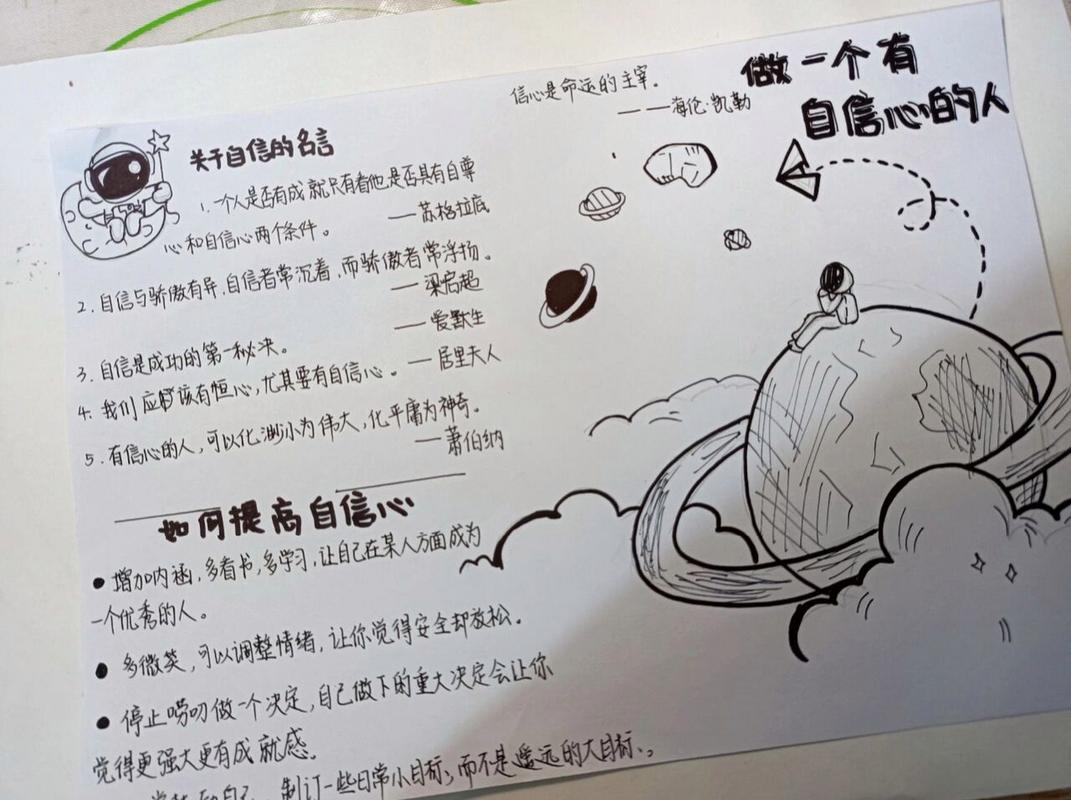 做一个有
自信心的人
信心是命运的主宰。
——海伦·凯勒
关于自信的名言
1.一个人是否有成就只有看他是否具有自尊
——苏格拉底
心和自信心两个条件。
2.自信与骄傲有异,自信者常沉着,而骄傲者常浮扬。
——梁启超
——爱默生
3.自信是成功的第一秘决。
4.我们应该有恒心,尤其要有自信心。——居里夫人
5.有信心的人,可以化渺小为伟大,化平庸为神奇。
——萧伯纳
如何提高自信心
●增加内涵,多看书,多学习,让自己在某人方面成为
一个优秀的人。
●多微笑,可以调整情绪,让你觉得安全却放松。
●停止唠叨做一个决定,自己做下的重大决定会让你
觉得更强大更有成就感。
自己,制订一些日常小目标,而不是遥远的大目标、。